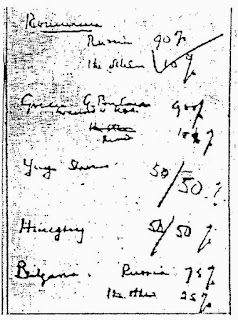 Roumania
Russia 90%
The others 10%
Greece G. Britain 90%
in accord with U.S.A.
Russia 10%
Yugo Slavia 50/50%
Hungary 50/50%
Bulgaria. Russia 75%
The others 25%